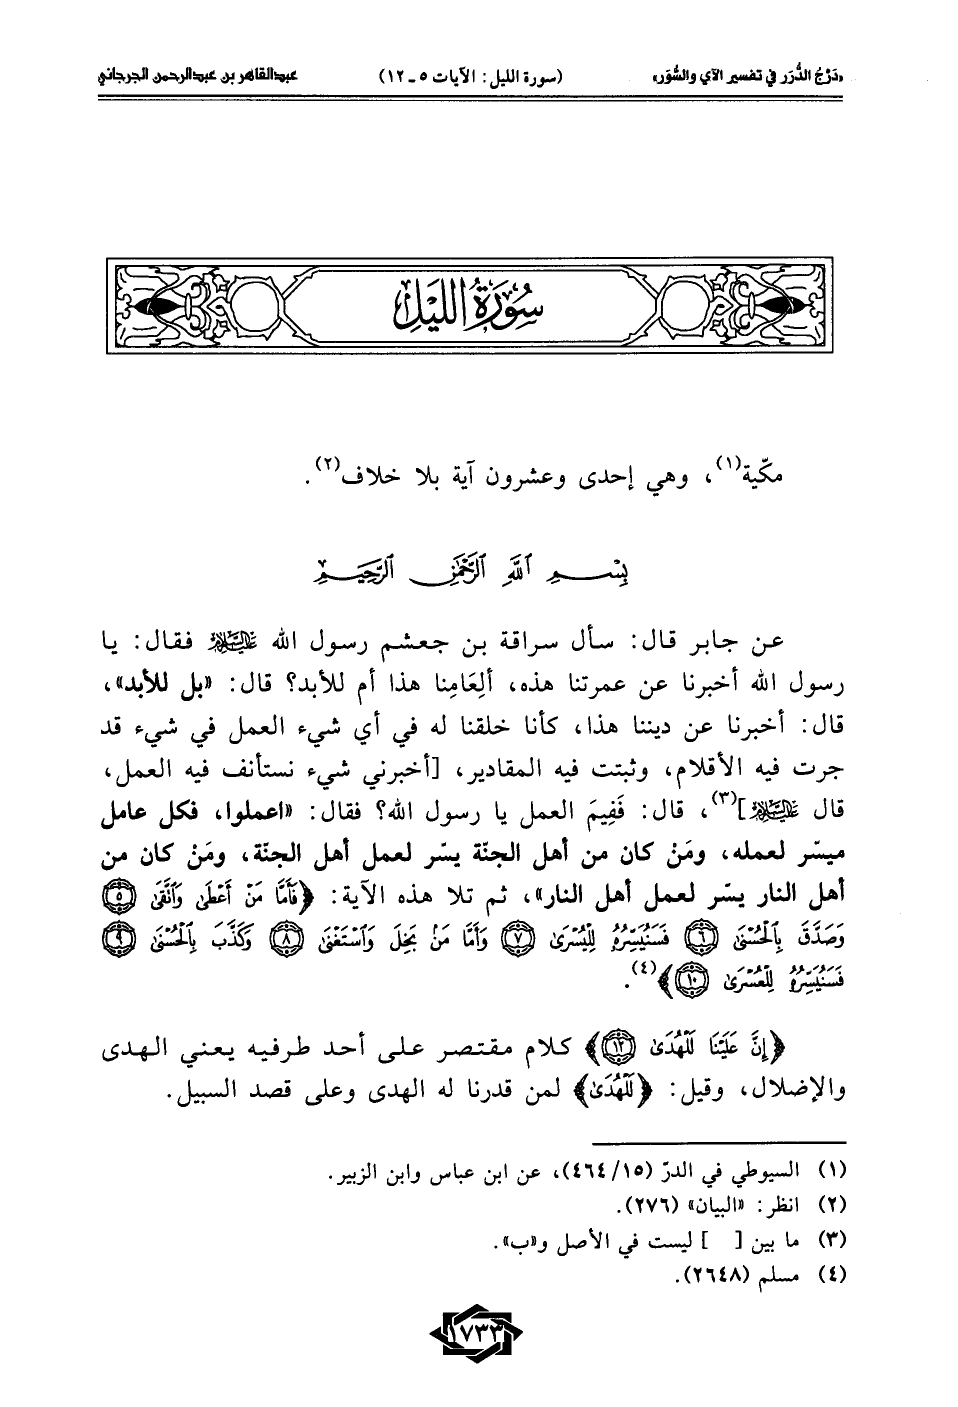 «دَرْجُ الدُّرَر في تفسير الآي والسُّوَر» (سورة الليل: الآيات ٥ ـ ١٢) عبدالقاهر بن عبدالرحمن الجرجاني
سُورَةُ اللَّيْلِ
مكّية(١)، وهي إحدى وعشرون آية بلا خلاف(٢).
بِسْمِ اللَّهِ الرَّحْمَٰنِ الرَّحِيمِ
عن جابر قال: سأل سراقة بن جعشم رسول الله عَلَيْهِ السَّلَام فقال: يا
رسول الله أخبرنا عن عمرتنا هذه، ألِعَامِنا هذا أم للأبد؟ قال: «بل للأبد»،
قال: أخبرنا عن ديننا هذا، كأنا خلقنا له في أي شيء العمل في شيء قد
جرت فيه الأقلام، وثبتت فيه المقادير، [أخبرني شيء نستأنف فيه العمل،
قال عَلَيْهِ السَّلَام](٣)، قال: فَفِيمَ العمل يا رسول الله؟ فقال: «اعملوا، فكل عامل
ميسّر لعمله، ومَنْ كان من أهل الجنّة يسّر لعمل أهل الجنّة، ومَنْ كان من
أهل النار يسّر لعمل أهل النار»، ثم تلا هذه الآية: ﴿فَأَمَّا مَنْ أَعْطَىٰ وَاتَّقَىٰ ٥
وَصَدَّقَ بِالْحُسْنَىٰ ٦ فَسَنُيَسِّرُهُ لِلْيُسْرَىٰ ٧ وَأَمَّا مَنْ بَخِلَ وَاسْتَغْنَىٰ ٨ وَكَذَّبَ بِالْحُسْنَىٰ ٩
فَسَنُيَسِّرُهُ لِلْعُسْرَىٰ ١٠﴾(٤).
﴿إِنَّ عَلَيْنَا لَلْهُدَىٰ ١٢﴾ كلام مقتصر على أحد طرفيه يعني الهدى
والإضلال، وقيل: ﴿لَلْهُدَىٰ﴾ لمن قدرنا له الهدى وعلى قصد السبيل.
(١) السيوطي في الدرّ (٤٦٤/١٥)، عن ابن عباس وابن الزبير.
(٢) انظر: «البيان» (٢٧٦).
(٣) ما بين [ ] ليست في الأصل و«ب».
(٤) مسلم (٢٦٤٨).
١٧٣٣